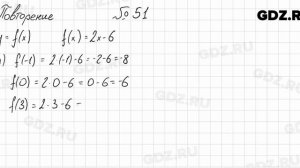 Повторение № 51 GDZ.RU
y = f(x) f(x) = 2x - 6
f(-1) = 2·(-1) - 6 = -2 - 6 = -8
f(0) = 2·0 - 6 = 0 - 6 = -6
f(3) = 2·3 - 6 =